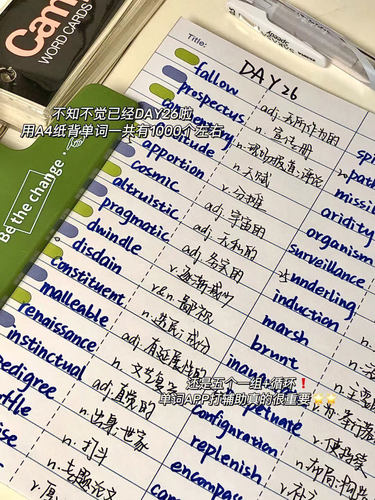 Cam
WORD CARDS
Be the change.
Title:
DAY 26
不知不觉已经DAY26啦
用A4纸背单词一共有1000个左右
fallow adj.无所作为的
prospectus n.宣传册
commentary n.现场报道;评论
apportion v.分摊
cosmic adj.宇宙的
altruistic adj.无私的
pragmatic adj.务实的
dwindle v.逐渐减少
disdain v&n.鄙视
constituent n.选民;成分
malleable adj.有延展性的
renaissance n.文艺复兴
instinctual adj.直觉的
pedigree n.出身.世家
n.打斗
n.主题论文
aridity
organism
surveillance
underling
induction
marsh
brunt
还是五个一组+循环❗
单词APP打辅助真的很重要⭐⭐
configuration
replenish
encompass